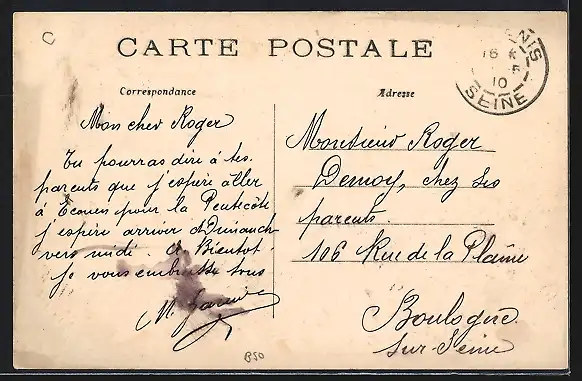 CARTE POSTALE
NIS
16
5
10
SEINE
Correspondance
Adresse
Mon cher Roger
Tu pourras dire à tes
parents que j'espère aller
à Ecouen pour la Pentecôte
j'espère arriver Dimanch
vers midi. A Bientot.
je vous embrasse tous
M.
Monsieur Roger
Demoy, chez ses
parents.
106 Rue de la Plaine
Boulogne
sur-Seine
B50